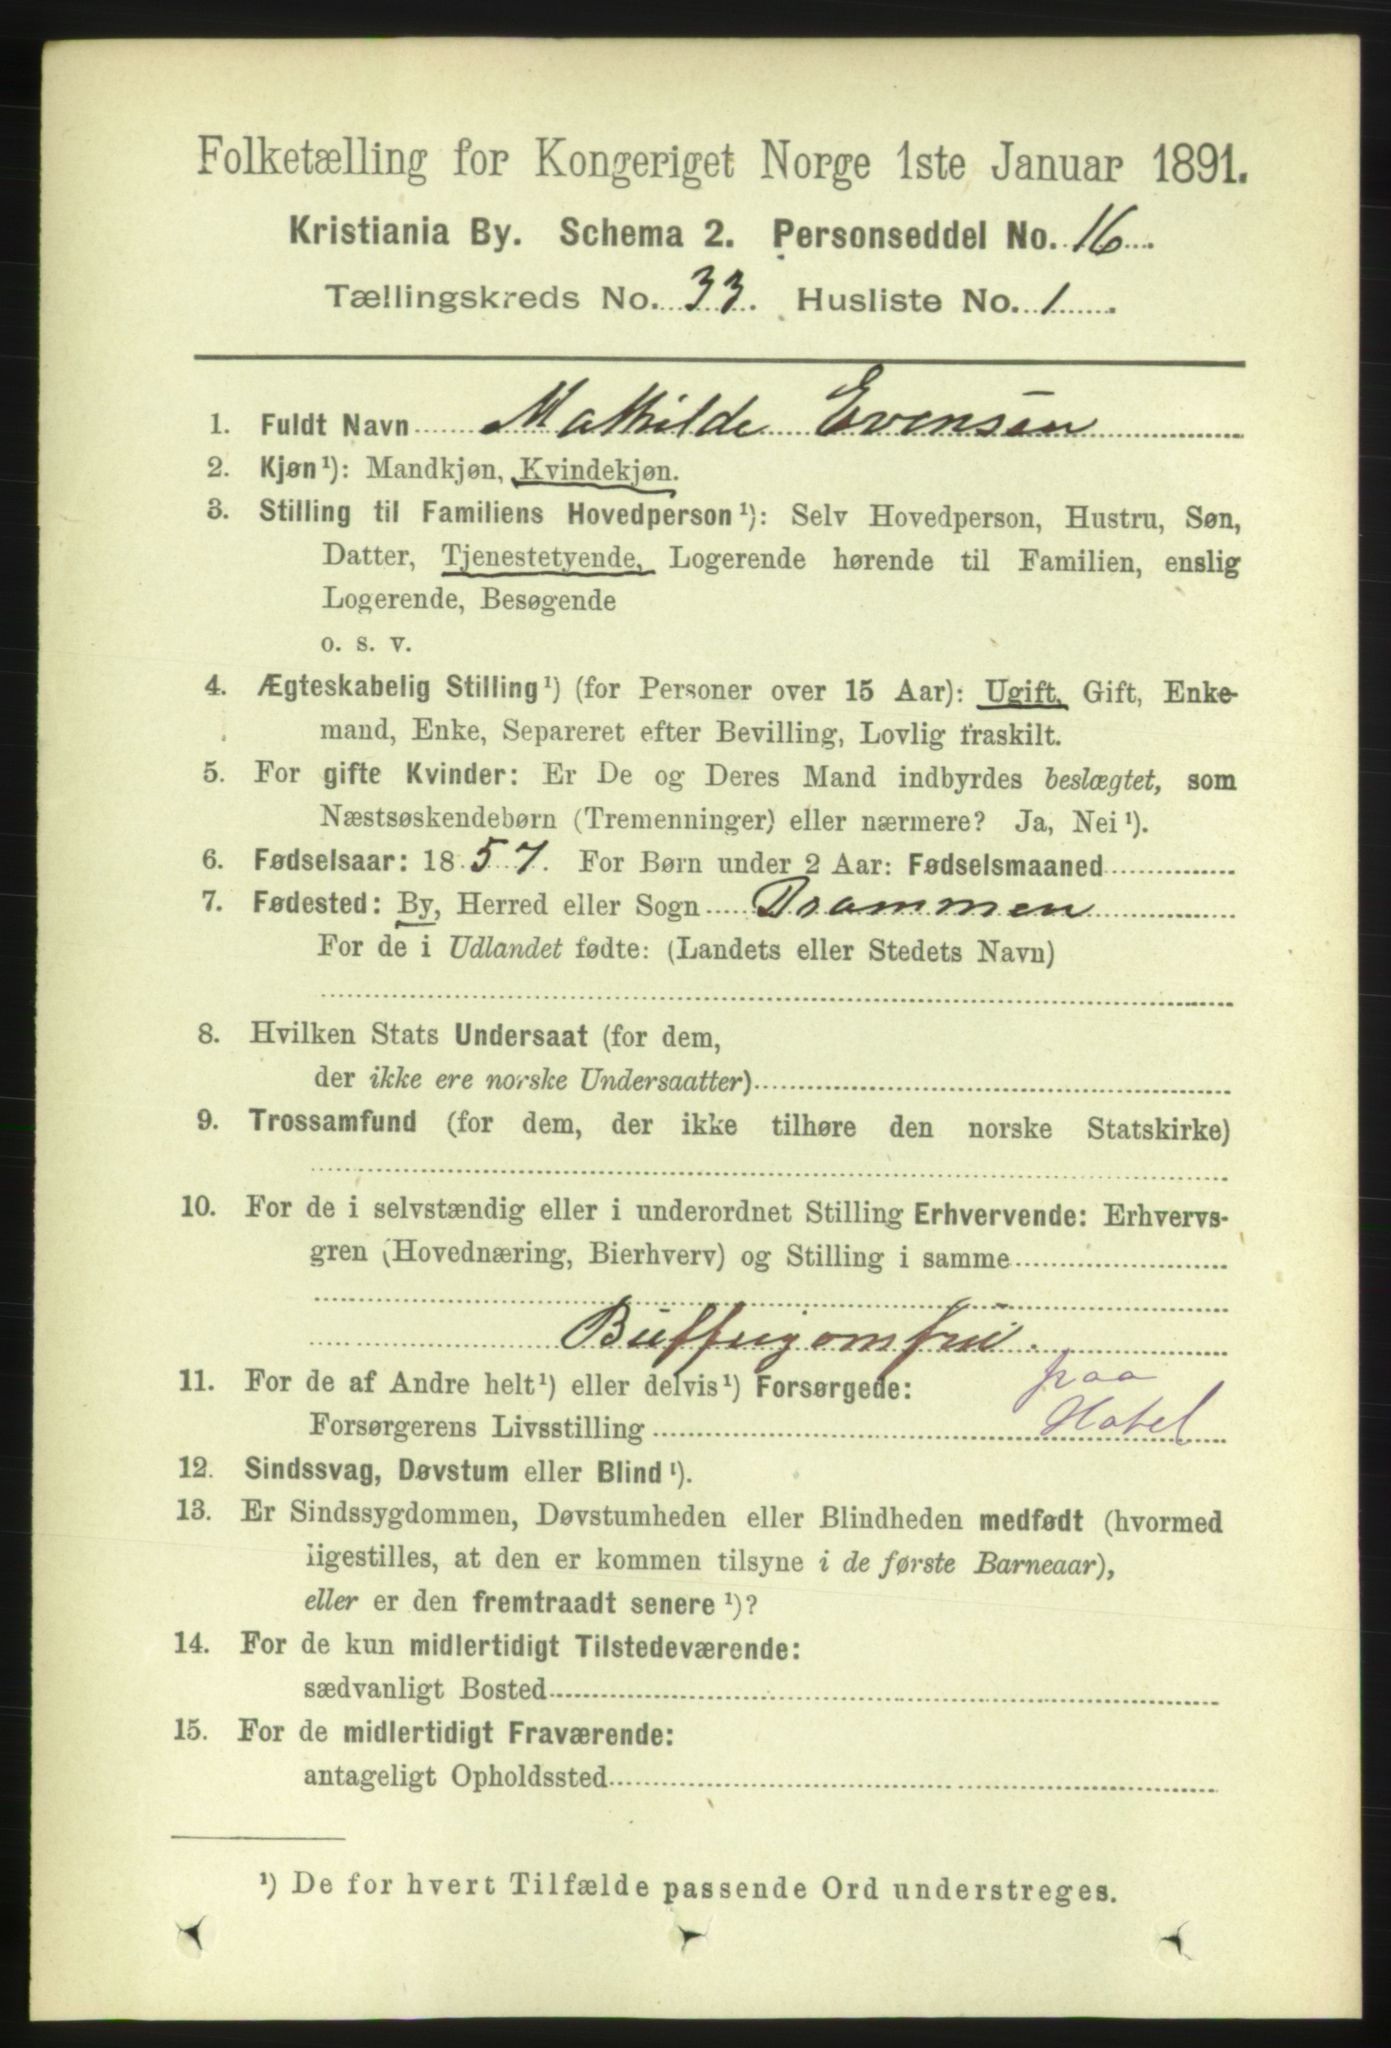 Folketælling for Kongeriget Norge 1ste Januar 1891.
Kristiania By. Schema 2. Personseddel No. 16.
Tællingskreds No. 33. Husliste No. 1
1. Fuldt Navn Mathilde Evensen
2. Kjøn¹): Mandkjøn, Kvindekjøn.
3. Stilling til Familiens Hovedperson¹): Selv Hovedperson, Hustru, Søn,
Datter, Tjenestetyende, Logerende hørende til Familien, enslig
Logerende, Besøgende
o. s. v.
4. Ægteskabelig Stilling¹) (for Personer over 15 Aar): Ugift, Gift, Enke-
mand, Enke, Separeret efter Bevilling, Lovlig fraskilt.
5. For gifte Kvinder: Er De og Deres Mand indbyrdes beslægtet, som
Næstsøskendebørn (Tremenninger) eller nærmere? Ja, Nei¹).
6. Fødselsaar: 1857. For Børn under 2 Aar: Fødselsmaaned
7. Fødested: By, Herred eller Sogn Drammen
For de i Udlandet fødte: (Landets eller Stedets Navn)
8. Hvilken Stats Undersaat (for dem,
der ikke ere norske Undersaatter)
9. Trossamfund (for dem, der ikke tilhøre den norske Statskirke)
10. For de i selvstændig eller i underordnet Stilling Erhvervende: Erhvervs-
gren (Hovednæring, Bierhverv) og Stilling i samme
Buffetjomfru.
paa
11. For de af Andre helt¹) eller delvis¹) Forsørgede:
Forsørgerens Livsstilling Hotel
12. Sindssvag, Døvstum eller Blind¹).
13. Er Sindssygdommen, Døvstumheden eller Blindheden medfødt (hvormed
ligestilles, at den er kommen tilsyne i de første Barneaar),
eller er den fremtraadt senere¹)?
14. For de kun midlertidigt Tilstedeværende:
sædvanligt Bosted
15. For de midlertidigt Fraværende:
antageligt Opholdssted
¹) De for hvert Tilfælde passende Ord understreges.